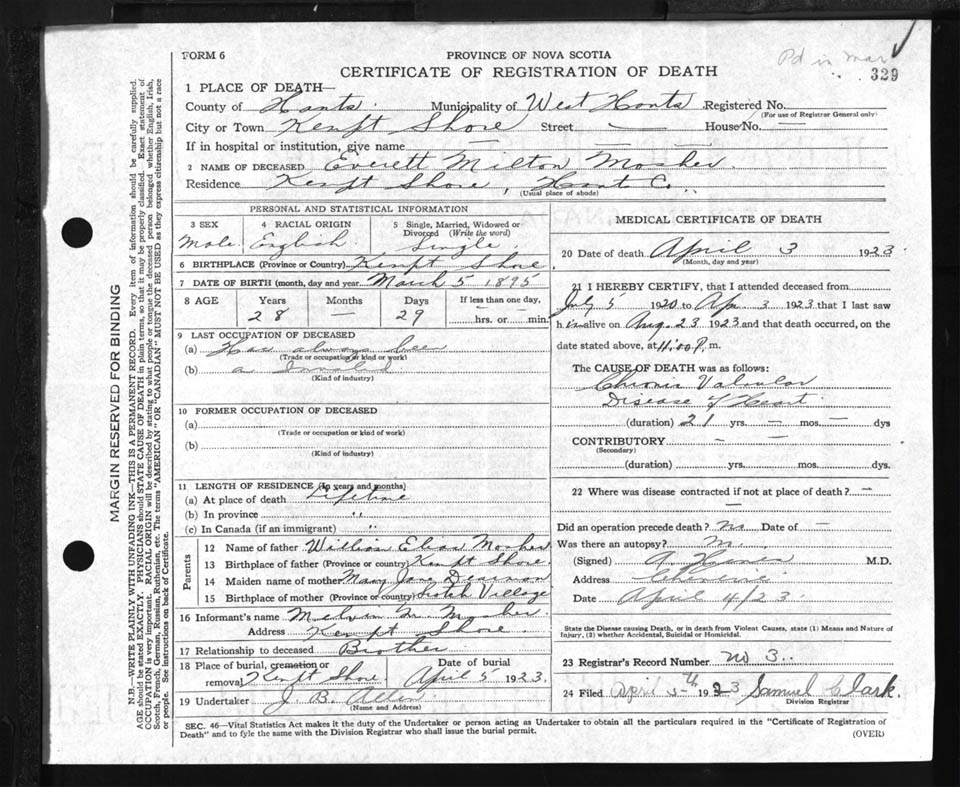 Pd in Mar
329
FORM 6
PROVINCE OF NOVA SCOTIA
CERTIFICATE OF REGISTRATION OF DEATH
1 PLACE OF DEATH—
County of Hants. Municipality of West Hants Registered No.
(For use of Registrar General only)
City or Town Kempt Shore Street — House No. —
If in hospital or institution, give name — —
2 NAME OF DECEASED Everett Milton Mosher.
Residence Kempt Shore, Hant Co.
(Usual place of abode)
PERSONAL AND STATISTICAL INFORMATION
3 SEX Male.
4 RACIAL ORIGIN English.
5 Single, Married, Widowed or Divorced (Write the word) Single.
6 BIRTHPLACE (Province or Country) Kempt Shore
7 DATE OF BIRTH (month, day and year) March 5 1895
8 AGE Years 28 Months — Days 29 If less than one day, hrs. or min.
9 LAST OCCUPATION OF DECEASED
(a) Has always been
(Trade or occupation or kind of work)
(b) a Invalid
(Kind of industry)
10 FORMER OCCUPATION OF DECEASED
(a)
(Trade or occupation or kind of work)
(b)
(Kind of industry)
11 LENGTH OF RESIDENCE (In years and months)
(a) At place of death Lifetime
(b) In province "
(c) In Canada (if an immigrant) "
Parents
12 Name of father William Elias Mosher
13 Birthplace of father (Province or country) Kempt Shore.
14 Maiden name of mother Mary Jane
15 Birthplace of mother (Province or country) Scotch Village
16 Informant's name Melvin M. Mosher.
Address Kempt Shore.
17 Relationship to deceased Brother
18 Place of burial, cremation or removal Kempt Shore Date of burial April 5 1923.
19 Undertaker J. B. Allen
(Name and Address)
MEDICAL CERTIFICATE OF DEATH
20 Date of death April 3 1923
(Month, day and year)
21 I HEREBY CERTIFY, that I attended deceased from
July 5 1920 to Apr. 3 1923 that I last saw
him alive on Aug. 23 1923 and that death occurred, on the
date stated above, at 11:00 P. m.
The CAUSE OF DEATH was as follows:
Chronic Valvular
Disease of Heart.
(duration) 21 yrs. — mos. — dys
CONTRIBUTORY — —
(Secondary)
(duration) yrs. mos. dys.
22 Where was disease contracted if not at place of death? —
—
Did an operation precede death? No Date of —
Was there an autopsy? No
(Signed) M.D.
Address
Date April 4/23.
State the Disease causing Death, or in death from Violent Causes, state (1) Means and Nature of
Injury, (2) whether Accidental, Suicidal or Homicidal.
23 Registrar's Record Number No 3.
24 Filed April 5th 1923 Samuel Clark.
Division Registrar
SEC. 46—Vital Statistics Act makes it the duty of the Undertaker or person acting as Undertaker to obtain all the particulars required in the "Certificate of Registration of
Death" and to fyle the same with the Division Registrar who shall issue the burial permit.
(OVER)
MARGIN RESERVED FOR BINDING
N.B.—WRITE PLAINLY WITH UNFADING INK—THIS IS A PERMANENT RECORD. Every item of information should be carefully supplied.
AGE should be stated EXACTLY. PHYSICIANS should STATE CAUSE OF DEATH in plain terms, so that it may be properly classified. Exact statement of
OCCUPATION is very important. RACIAL ORIGIN will be described by stating to what people or tongue the deceased person belonged whether English, Irish,
Scotch, French, German, Russian, Ruthenian, etc. The terms "AMERICAN" OR "CANADIAN" MUST NOT BE USED as they express citizenship but not a race
or people. See instructions on back of Certificate.